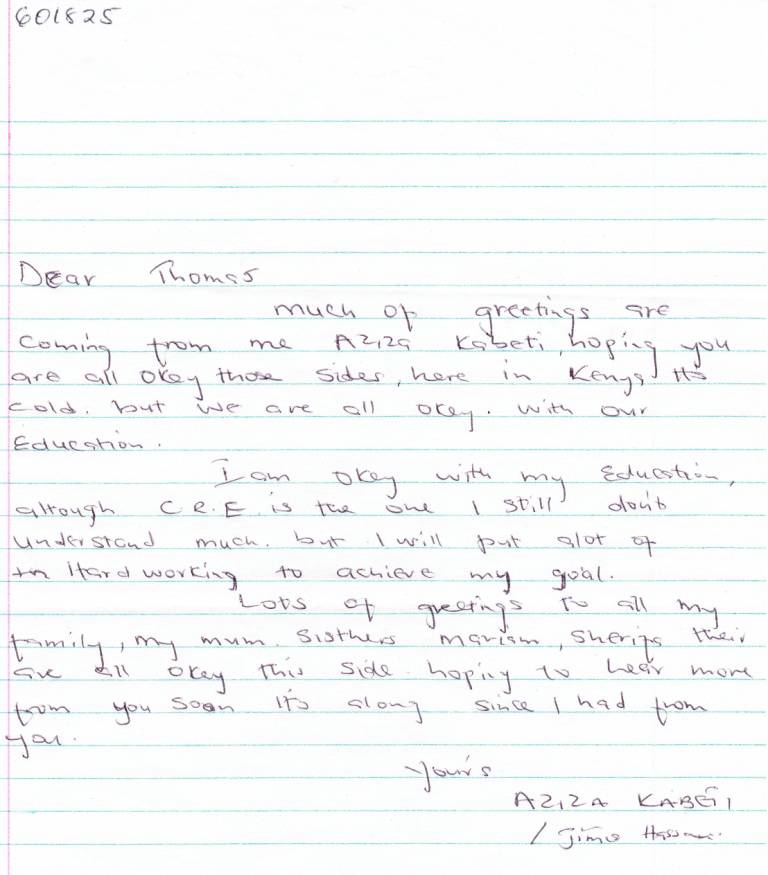 601825
Dear Thomas
much of greetings are
coming from me Aziza Kabeti, hoping you
are all okey those sides, here in Kenya its
cold. but we are all okey. with our
Education.
I am okey with my Education,
altough C.R.E. is the one I still don't
understand much. but I will put alot of
Hard working to achieve my goal.
Lots of greetings to all my
family, my mum. Sisthers Mariam, Sherifa their
are all okey this side. hoping to hear more
from you soon it's along since I had from
you.
Your's
AZIZA KABETI
/ Jimo